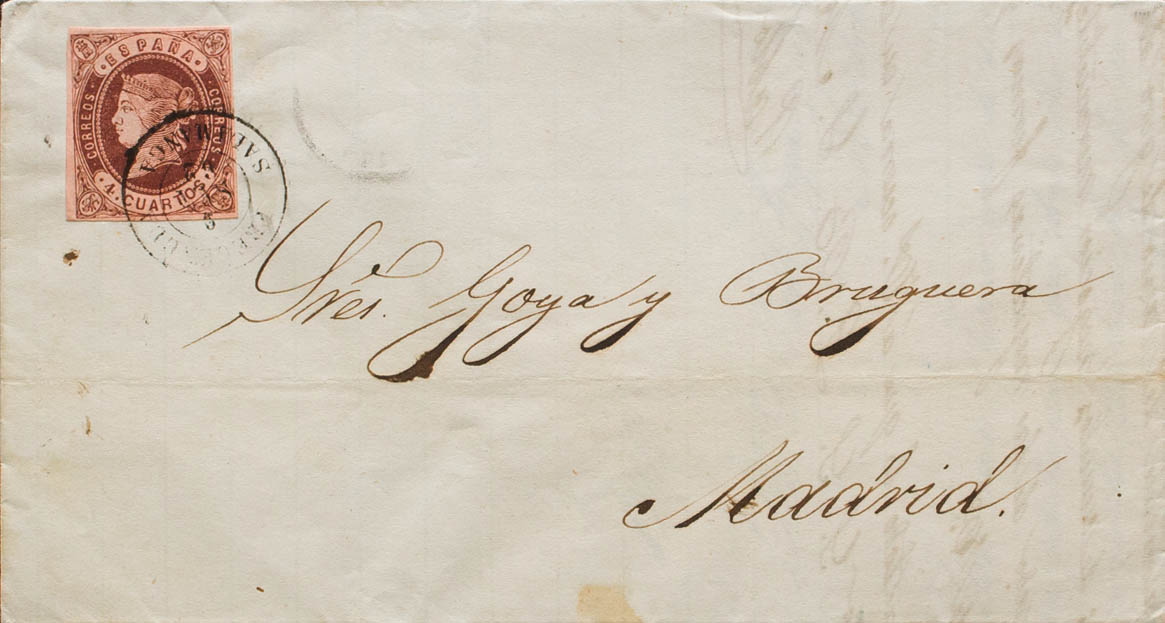 ESPAÑA
CORREOS
CORREOS
4 CUARTOS
SALAMANCA
Sres. Goya y Bruguera
Madrid.